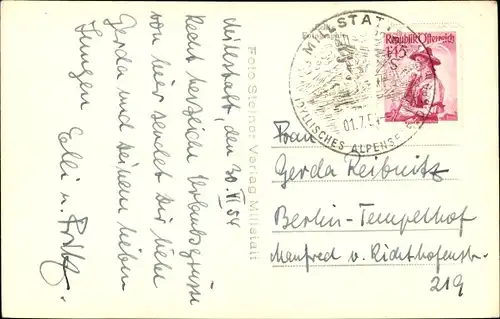 Millstatt, den 30. VI 54
Recht herzliche Urlaubsgrüsse
von hier sendet Dir liebe
Gerda und Deinen lieben
Jungen Elli u. Fritz.
Foto Steiner Verlag Millstatt
MILLSTATT
01.7.54
IDYLLISCHES ALPENSEE
Republik Österreich
1.45
S
Frau
Gerda Reibnitz
Berlin-Tempelhof
Manfred v. Richthofenstr.
219